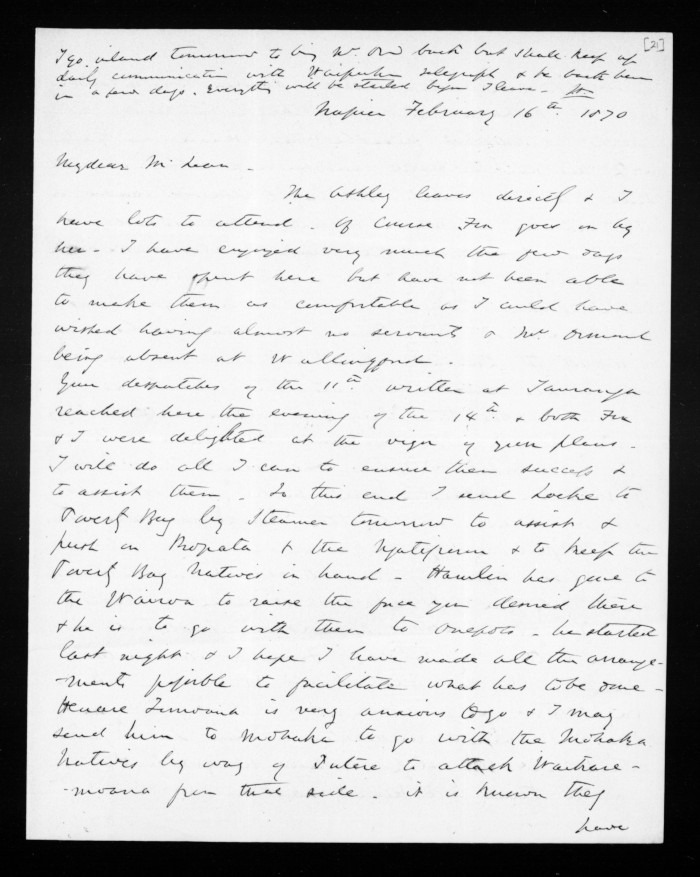 [21]
I go inland tomorrow to bring Mr. Ord back but shall keep up
daily communication with Waipukurau telegraph & be back here
in a few days. Everything will be started before I leave.
Napier February 16th. 1870
My dear McLean -
The Ashley leaves directly & I
have lots to attend. Of course Fox goes on by
her. I have enjoyed very much the few days
they have spent here but have not been able
to make them as comfortable as I could have
wished having almost no servants & Mrs. Ormond
being absent at Wallingford.
Your despatches of the 11th. written at Tauranga
reached here the evening of the 14th. & both Fox
& I were delighted at the vigor of your plans.
I will do all I can to ensure them success &
to assist them. To this end I send Locke to
Poverty Bay by Steamer tomorrow to assist &
push on Ropata & the Ngatiporou & to keep the
Poverty Bay Natives in hand - Hamlin has gone to
the Wairoa to raise the force you desired there
& he is to go with them to Onepoto - he started
last night & I hope I have made all the arrange-
-ments possible to facilitate what has to be done -
Henare Tomoana is very anxious to go & I may
send him to Mohaka to go with the Mohaka
Natives by way of Putere to attack Waikare-
-moana from that side. it is known they
have